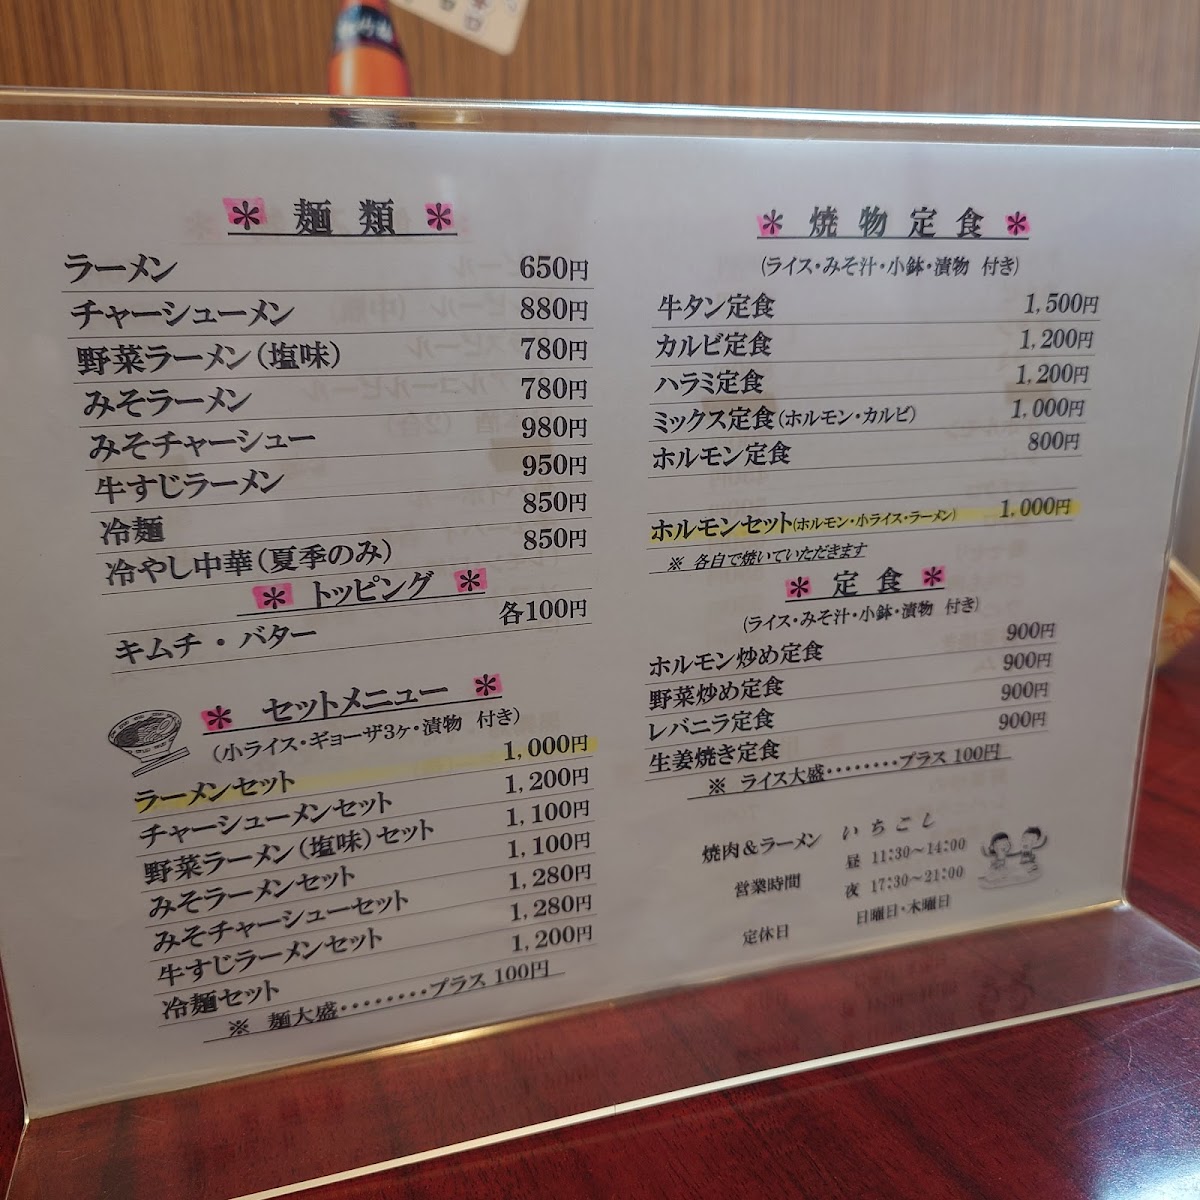 ＊ 麺 類 ＊
ラーメン 650円
チャーシューメン 880円
野菜ラーメン(塩味) 780円
みそラーメン 780円
みそチャーシュー 980円
牛すじラーメン 950円
冷麺 850円
冷やし中華(夏季のみ) 850円
＊ トッピング ＊
キムチ・バター 各100円
＊ セットメニュー ＊
(小ライス・ギョーザ3ヶ・漬物 付き)
ラーメンセット 1,000円
チャーシューメンセット 1,200円
野菜ラーメン(塩味)セット 1,100円
みそラーメンセット 1,100円
みそチャーシューセット 1,280円
牛すじラーメンセット 1,280円
冷麺セット 1,200円
※ 麺大盛・・・・・・・・プラス 100円
＊ 焼 物 定 食 ＊
(ライス・みそ汁・小鉢・漬物 付き)
牛タン定食 1,500円
カルビ定食 1,200円
ハラミ定食 1,200円
ミックス定食(ホルモン・カルビ) 1,000円
ホルモン定食 800円
ホルモンセット(ホルモン・小ライス・ラーメン) 1,000円
※ 各自で焼いていただきます
＊ 定 食 ＊
(ライス・みそ汁・小鉢・漬物 付き)
ホルモン炒め定食 900円
野菜炒め定食 900円
レバニラ定食 900円
生姜焼き定食 900円
※ ライス大盛・・・・・・・・プラス 100円
焼肉&ラーメン いちごし
営業時間 昼 11:30～14:00
夜 17:30～21:00
定休日 日曜日・木曜日